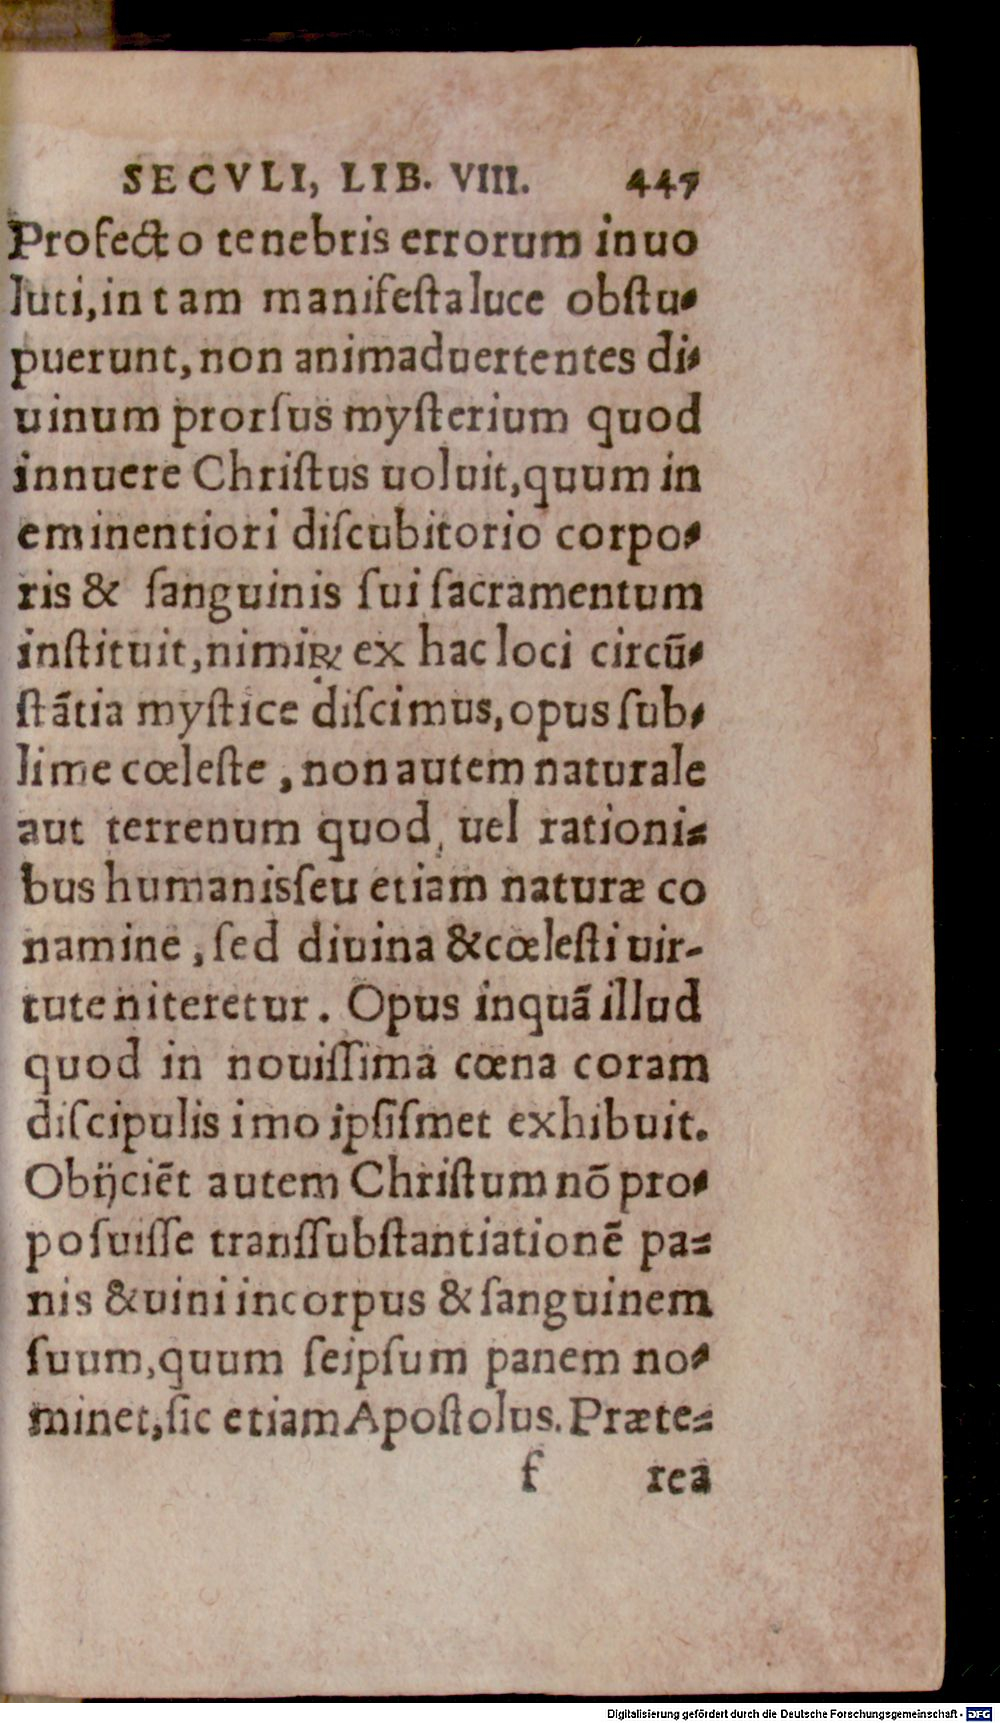 SECVLI, LIB. VIII. 447
Profecto tenebris errorum inuo
luti, in tam manifesta luce obſtu-
puerunt, non animaduertentes di-
uinum prorſus myſterium quod
innuere Chriſtus uoluit, quum in
eminentiori diſcubitorio corpo-
ris & ſanguinis ſui ſacramentum
inſtituit, nimiꝝ ex hac loci circū-
ſtātia myſtice diſcimus, opus ſub-
lime cœleſte, non autem naturale
aut terrenum quod, uel rationi-
bus humanis ſeu etiam naturæ co
namine, ſed diuina & cœleſti uir-
tute niteretur. Opus inquā illud
quod in nouiſſima cœna coram
diſcipulis imo ipſiſmet exhibuit.
Obijciēt autem Chriſtum nō pro-
poſuiſſe tranſſubſtantiationē pa-
nis & uini in corpus & ſanguinem
ſuum, quum ſeipſum panem no-
minet, ſic etiam Apoſtolus. Præte-
f rea
Digitalisierung gefördert durch die Deutsche Forschungsgemeinschaft - DFG